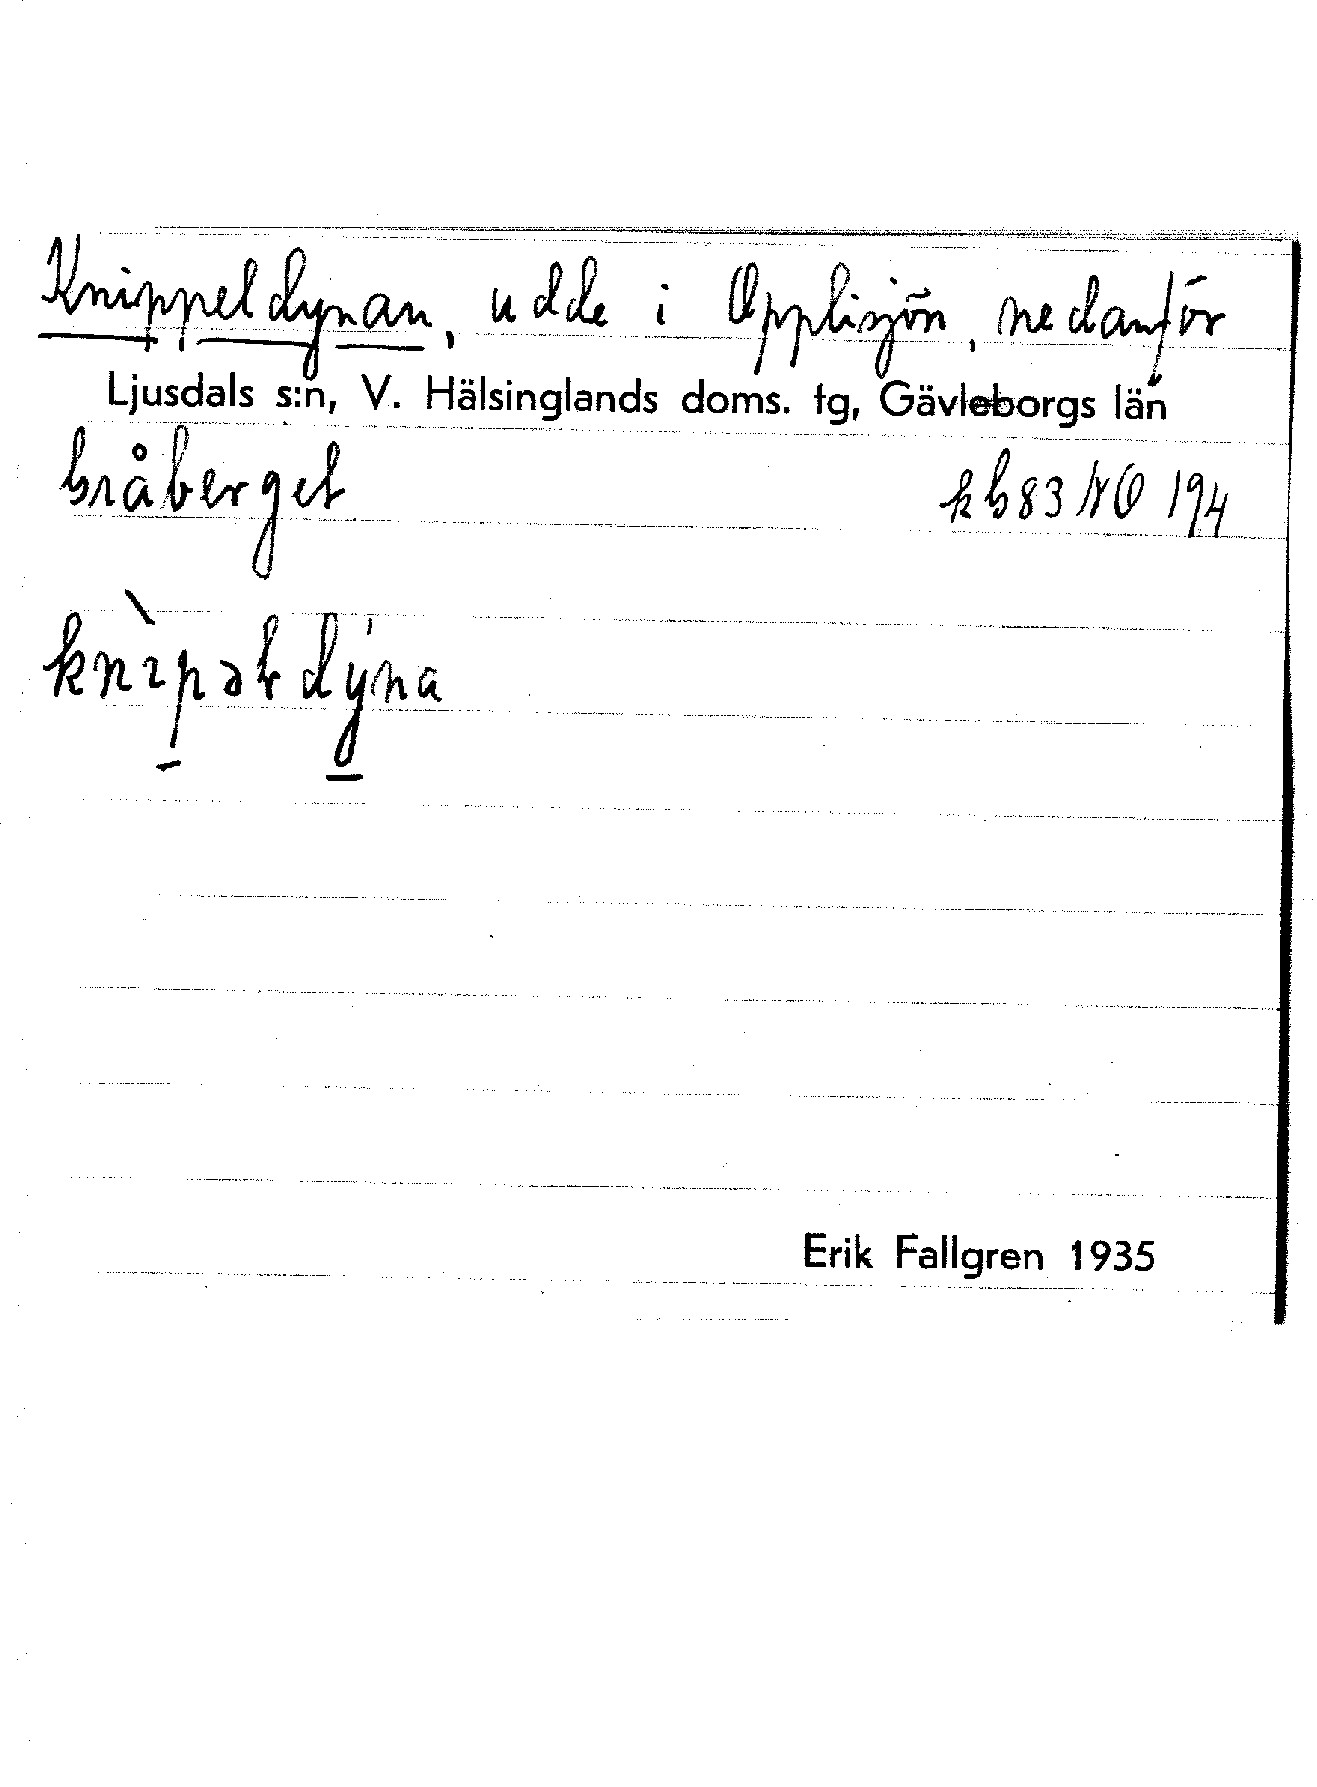 Knippeldynan, udde i Opplisjön, nedanför
Ljusdals s:n, V. Hälsinglands doms. tg, Gävleborgs län
Gråberget kb 83 NO 194
knipəldỳna
Erik Fallgren 1935